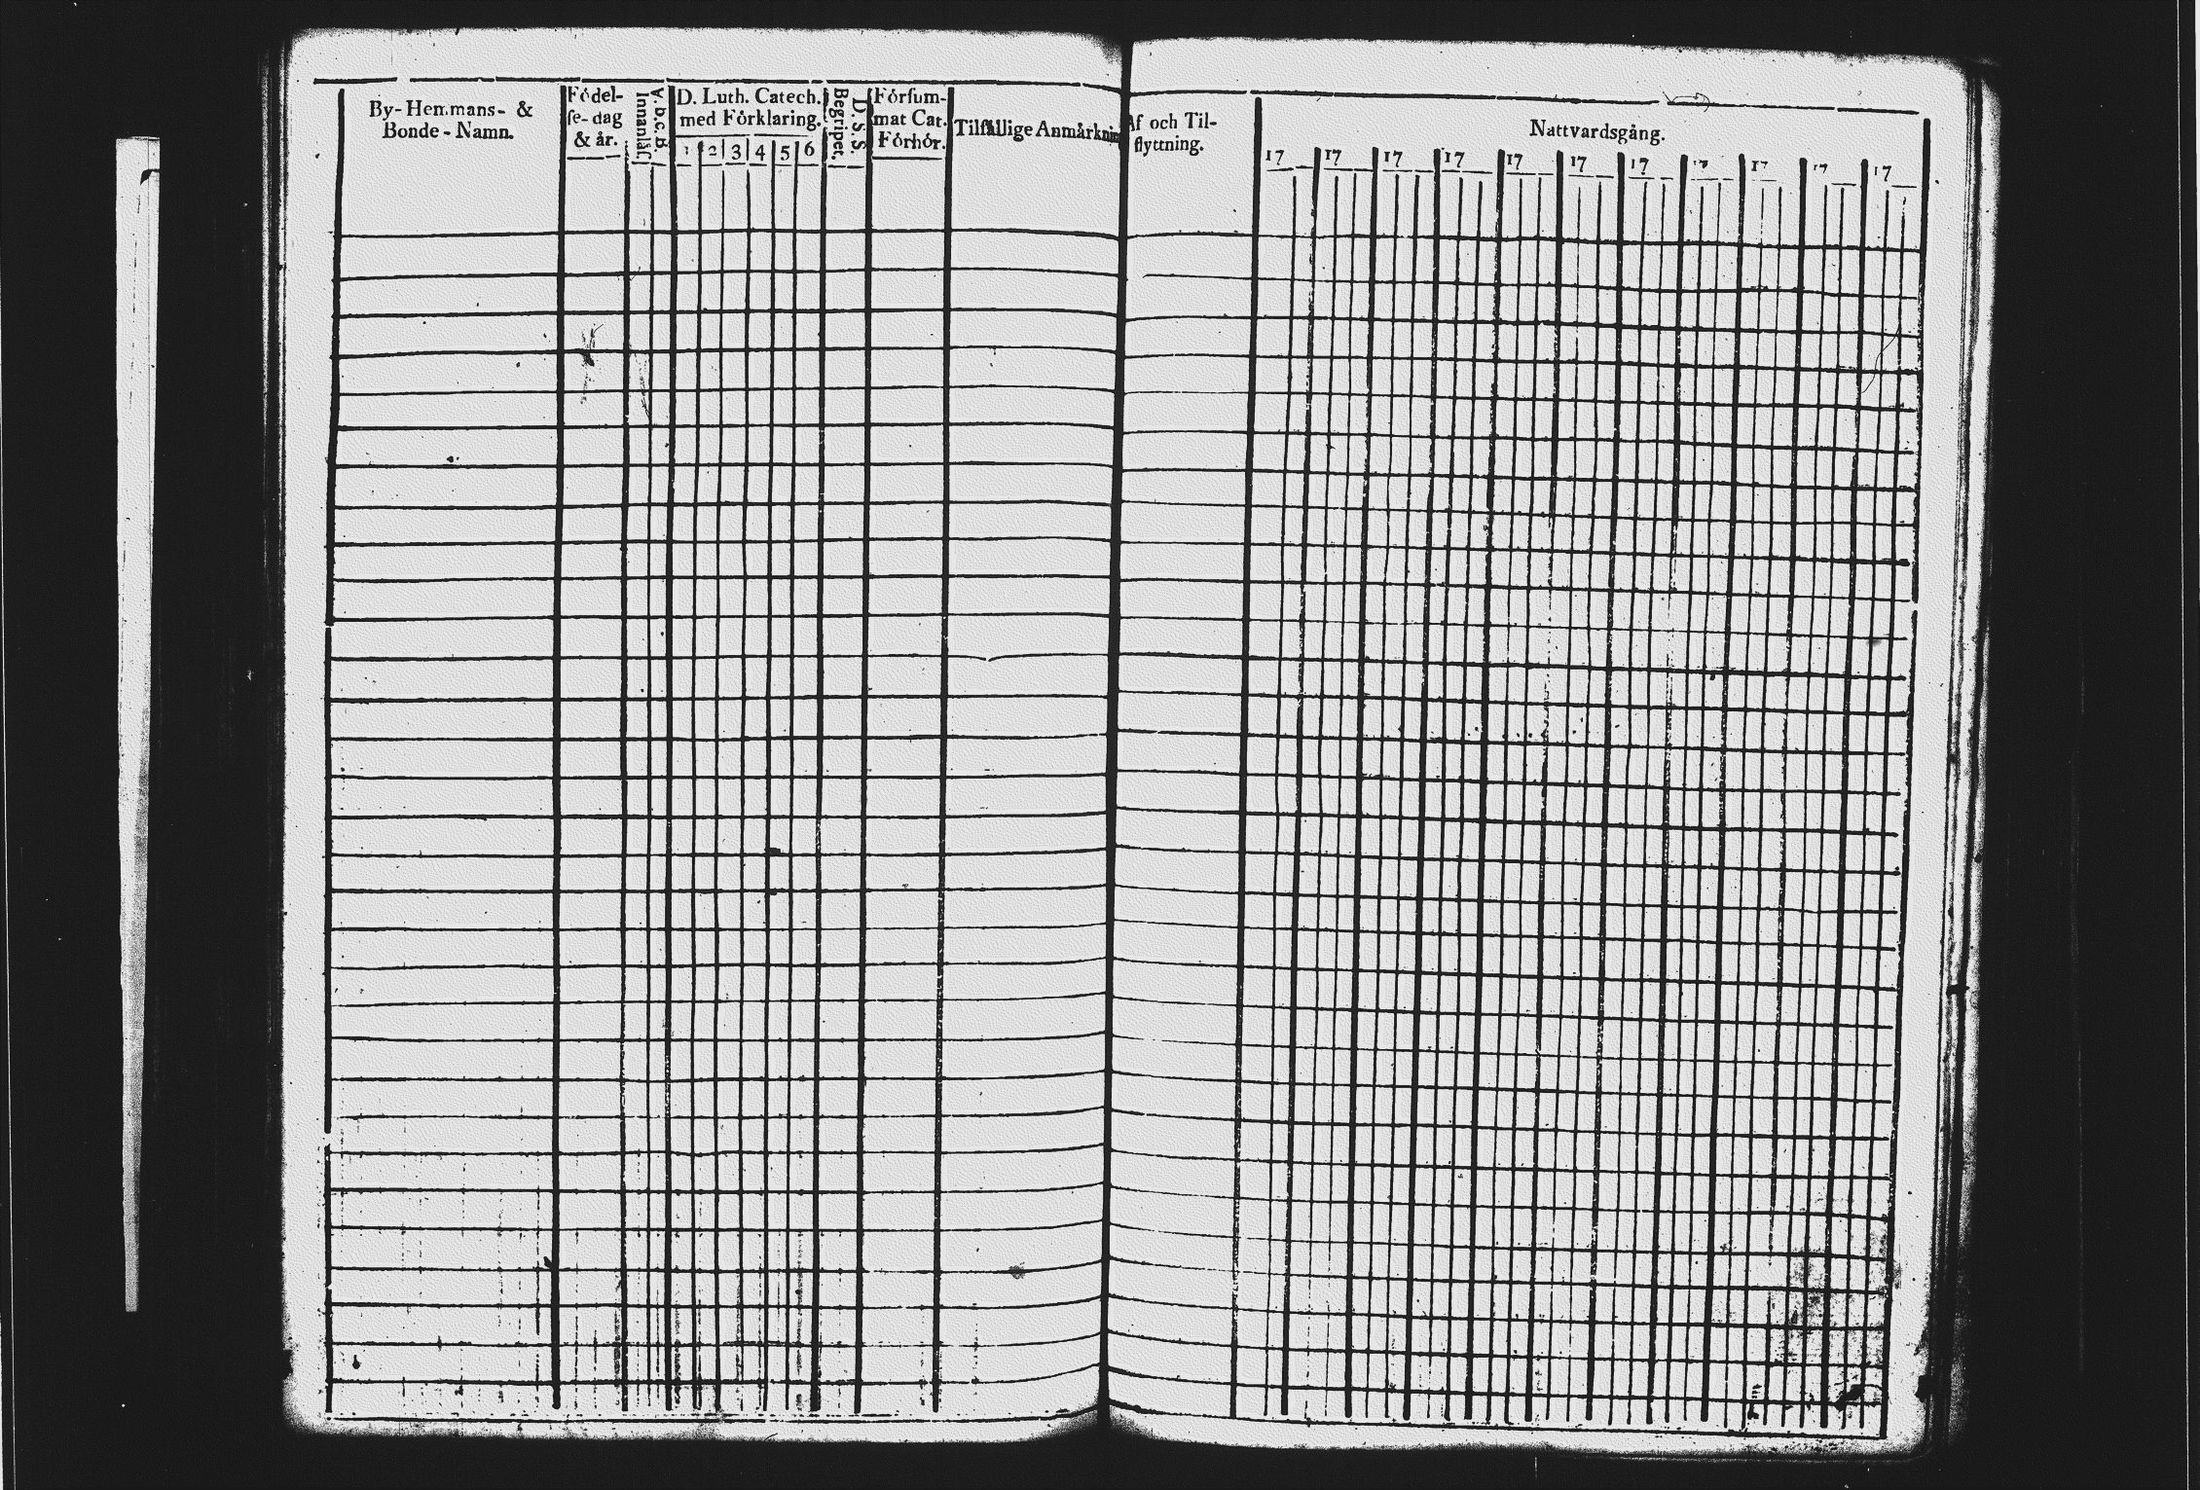 By- Hemmans- &
Bonde - Namn.
Födel-
se- dag
& år.
Innanläs.
A. b. c. B.
D. Luth. Catech.
med Förklaring.
1 2 3 4 5 6
Begripet.
D. S. S.
Försum-
mat Cat.
Förhör.
Tilfällige Anmärknin
Af och Til-
flyttning.
Nattvardsgång.
17 17 17 17 17 17 17 17 17 17 17